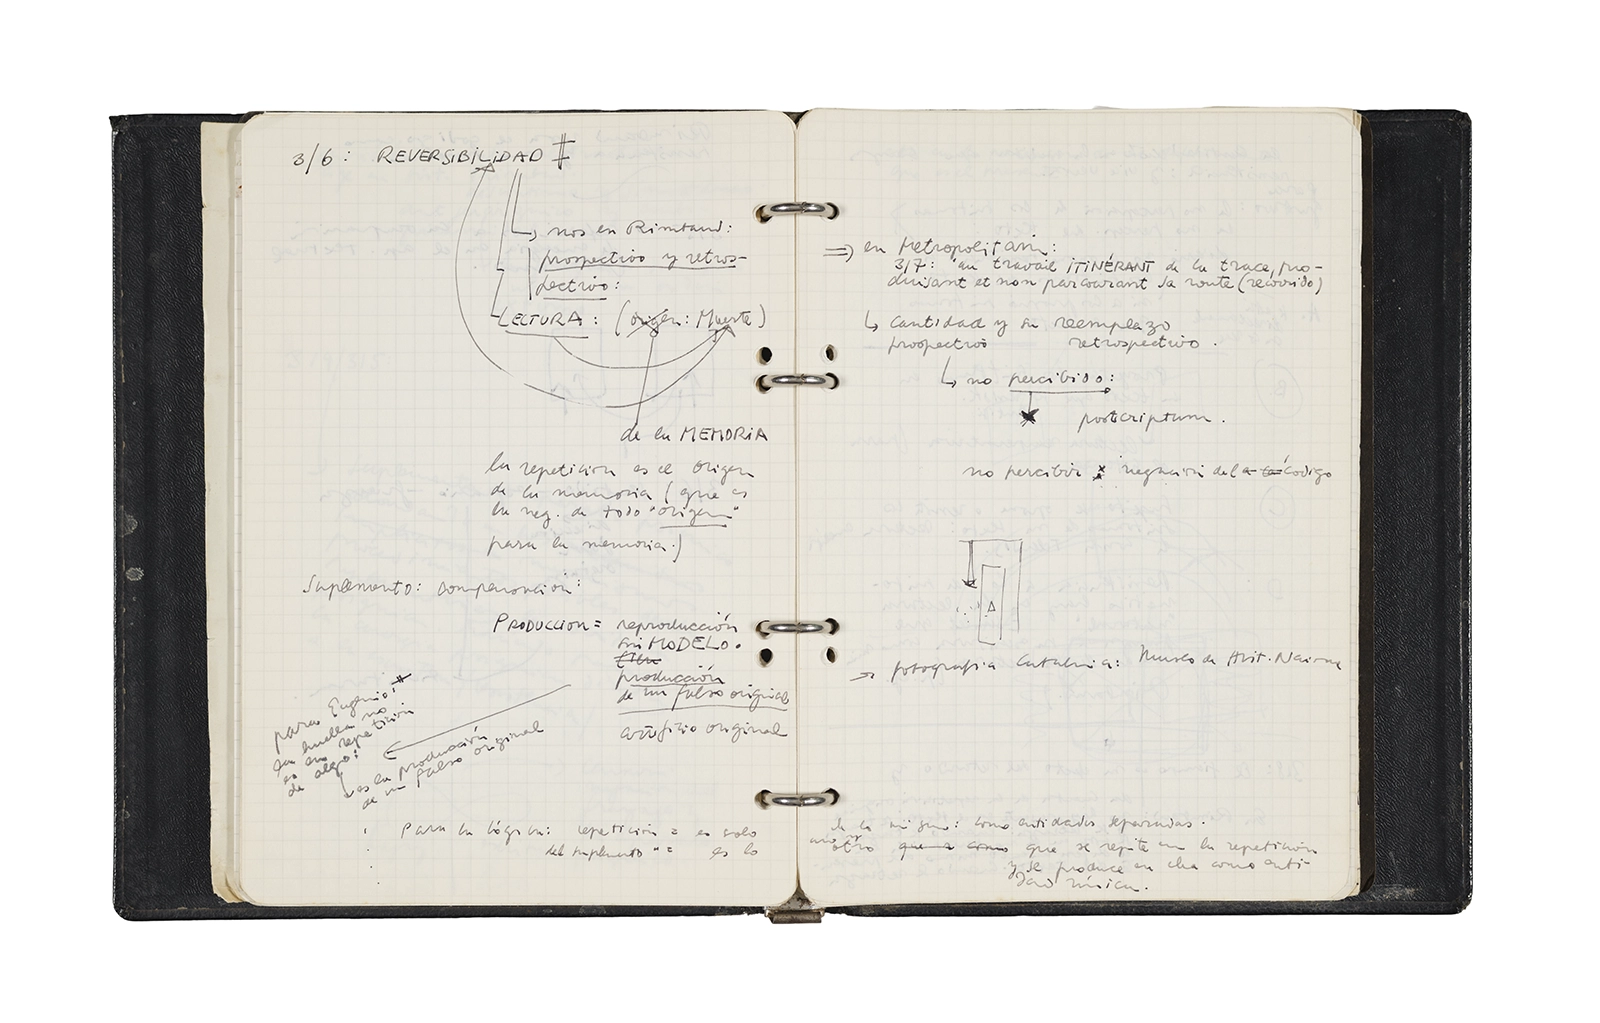 3/6: REVERSIBILIDAD ‡
nos en Rimbaud:
prospectivo y retros-
pectivo:
LECTURA: (origen: Muerte)
de la MEMORIA
la repeticion es el origen
de la memoria (que es
la neg. de todo "origen"
para la memoria.)
Suplemento:
PRODUCCION = reproducción
sin MODELO.
producción
de un falso original
artificio original
para Eugenio:
la huella no
es la repetición
de algo:
es la producción
de un falso original
Para la lógica: repetición = es solo
del suplemento " = es lo
⇒ en Metropolitain:
3/7: "un travail ITINÉRANT de la trace, pro-
duisant et non parcourant sa route (recorrido)
↳ cantidad y su reemplazo
prospectivo retrospectivo.
↳ no percibido:
postcriptum.
no percibir negación del código
A
→ fotografia Museo de Hist.
de lo mismo: como entidades separadas.
otro que a como que se repite en la repetición
y se produce en ella como enti-
dad única.